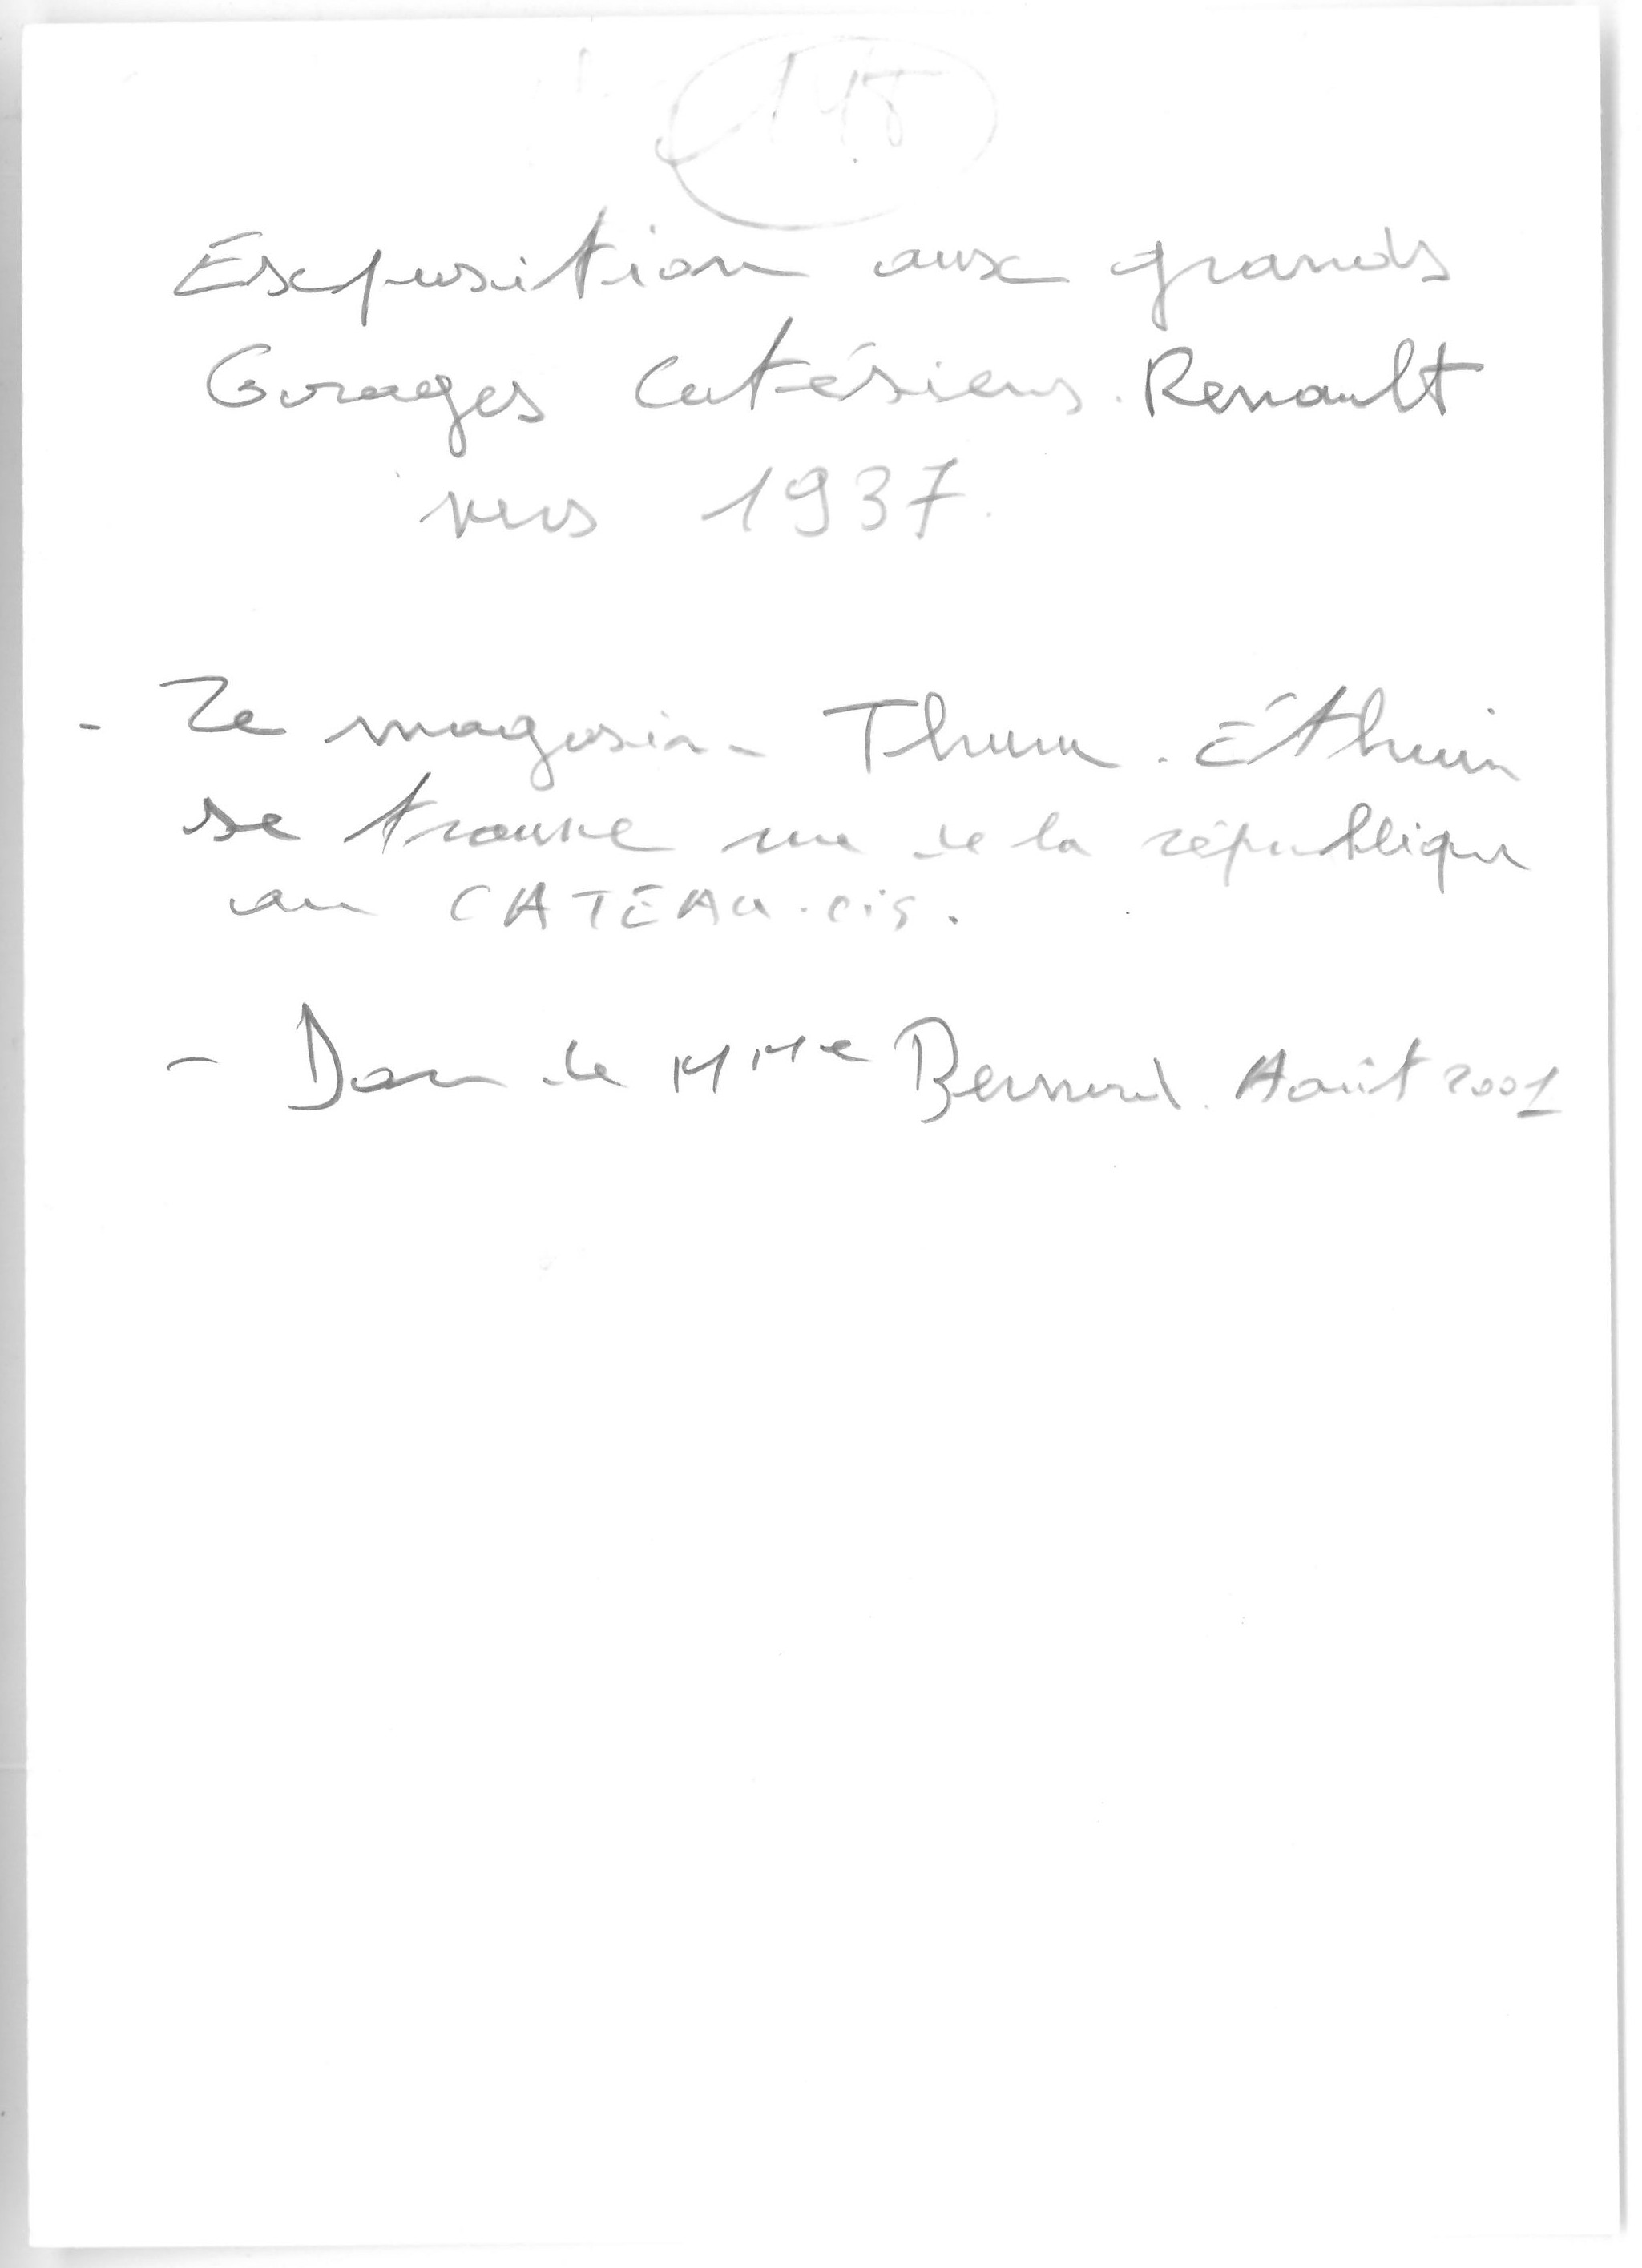 145
Exposition aux grands
Garages Catésiens. Renault
vers 1937.
- Le magasin Thuru. Éthuin
se trouve rue de la république
au CATEAU. cis.
- Don de MMe Bernard. Août 2001